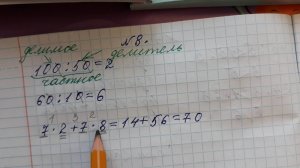 делимое №8.
делитель
100:50=2
частное
60:10=6
1 3 2
7·2+7·8=14+56=70